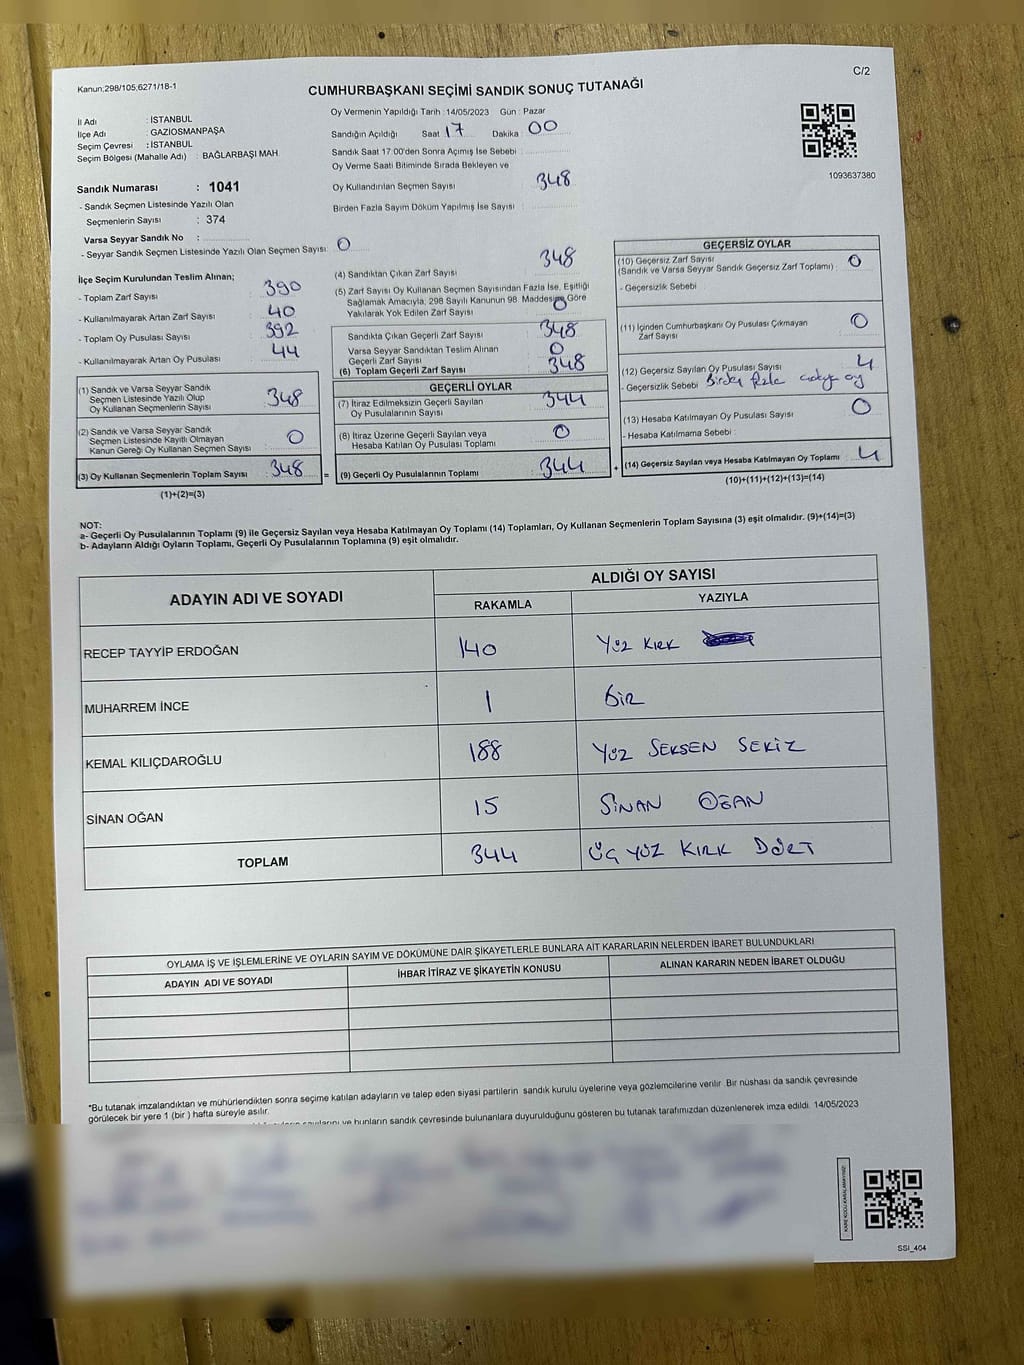 Kanun;298/105;6271/18-1
C/2
CUMHURBAŞKANI SEÇİMİ SANDIK SONUÇ TUTANAĞI
İl Adı : İSTANBUL
İlçe Adı : GAZİOSMANPAŞA
Seçim Çevresi : İSTANBUL
Seçim Bölgesi (Mahalle Adı) : BAĞLARBAŞI MAH.
Sandık Numarası : 1041
- Sandık Seçmen Listesinde Yazılı Olan
Seçmenlerin Sayısı : 374
Varsa Seyyar Sandık No :
- Seyyar Sandık Seçmen Listesinde Yazılı Olan Seçmen Sayısı: 0
Oy Vermenin Yapıldığı Tarih : 14/05/2023 Gün : Pazar
Sandığın Açıldığı Saat 17 Dakika 00
Sandık Saat 17:00'den Sonra Açımış İse Sebebi :
Oy Verme Saati Bitiminde Sırada Bekleyen ve
Oy Kullandırılan Seçmen Sayısı 348
Birden Fazla Sayım Döküm Yapılmış İse Sayısı :
1093637380
İlçe Seçim Kurulundan Teslim Alınan;
- Toplam Zarf Sayısı 390
- Kullanılmayarak Artan Zarf Sayısı 40
- Toplam Oy Pusulası 392
- Kullanılmayarak Artan Oy Pusulası 44
(1) Sandık ve Varsa Seyyar Sandık
Seçmen Listesinde Yazılı Olup
Oy Kullanan Seçmenlerin Sayısı 348
(2) Sandık ve Varsa Seyyar Sandık
Seçmen Listesinde Kayıtlı Olmayan
Kanun Gereği Oy Kullanan Seçmen Sayısı 0
(3) Oy Kullanan Seçmenlerin Toplam Sayısı 348 =
(1)+(2)=(3)
(4) Sandıktan Çıkan Zarf Sayısı 348
(5) Zarf Sayısı Oy Kullanan Seçmen Sayısından Fazla İse, Eşitliği
Sağlamak Amacıyla, 298 Sayılı Kanunun 98. Maddesine Göre
Yakılarak Yok Edilen Zarf Sayısı 0
Sandıkta Çıkan Geçerli Zarf Sayısı 348
Varsa Seyyar Sandıktan Teslim Alınan
Geçerli Zarf Sayısı 0
(6) Toplam Geçerli Zarf Sayısı 348
GEÇERLİ OYLAR
(7) İtiraz Edilmeksizin Geçerli Sayılan
Oy Pusulalarının Sayısı 344
(8) İtiraz Üzerine Geçerli Sayılan veya
Hesaba Katılan Oy Pusulası Toplamı 0
(9) Geçerli Oy Pusulalarının Toplamı 344 +
GEÇERSİZ OYLAR
(10) Geçersiz Zarf Sayısı 0
(Sandık ve Varsa Seyyar Sandık Geçersiz Zarf Toplamı) :
- Geçersizlik Sebebi
(11) İçinden Cumhurbaşkanı Oy Pusulası Çıkmayan
Zarf Sayısı 0
(12) Geçersiz Sayılan Oy Pusulası Sayısı 4
- Geçersizlik Sebebi Birden fazla adaya oy
(13) Hesaba Katılmayan Oy Pusulası Sayısı 0
- Hesaba Katılmama Sebebi :
(14) Geçersiz Sayılan veya Hesaba Katılmayan Oy Toplamı 4
(10)+(11)+(12)+(13)=(14)
NOT:
a- Geçerli Oy Pusulalarının Toplamı (9) ile Geçersiz Sayılan veya Hesaba Katılmayan Oy Toplamı (14) Toplamları, Oy Kullanan Seçmenlerin Toplam Sayısına (3) eşit olmalıdır. (9)+(14)=(3)
b- Adayların Aldığı Oyların Toplamı, Geçerli Oy Pusulalarının Toplamına (9) eşit olmalıdır.
ADAYIN ADI VE SOYADI ALDIĞI OY SAYISI
RAKAMLA YAZIYLA
RECEP TAYYİP ERDOĞAN 140 YÜZ KIRK
MUHARREM İNCE 1 BİR
KEMAL KILIÇDAROĞLU 188 YÜZ SEKSEN SEKİZ
SİNAN OĞAN 15 SİNAN OĞAN
TOPLAM 344 ÜÇ YÜZ KIRK DÖRT
OYLAMA İŞ VE İŞLEMLERİNE VE OYLARIN SAYIM VE DÖKÜMÜNE DAİR ŞİKAYETLERLE BUNLARA AİT KARARLARIN NELERDEN İBARET BULUNDUKLARI
ADAYIN ADI VE SOYADI İHBAR İTİRAZ VE ŞİKAYETİN KONUSU ALINAN KARARIN NEDEN İBARET OLDUĞU
*Bu tutanak imzalandıktan ve mühürlendikten sonra seçime katılan adayların ve talep eden siyasi partilerin sandık kurulu üyelerine veya gözlemcilerine verilir. Bir nüshası da sandık çevresinde
görülecek bir yere 1 (bir ) hafta süreyle asılır.
sayılarını ve bunların sandık çevresinde bulunanlara duyurulduğunu gösteren bu tutanak tarafımızdan düzenlenerek imza edildi. 14/05/2023
KARE KODU KARALAMAYINIZ!
SSI_404